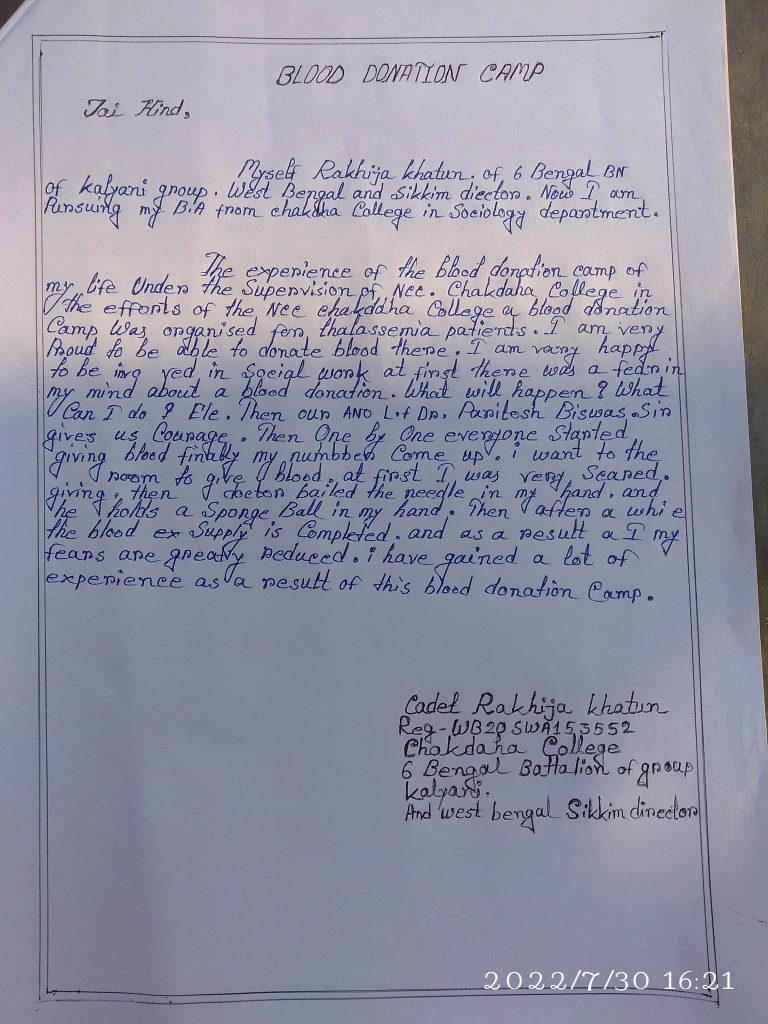 BLOOD DONATION CAMP
Jai Hind,
Myself Rakhija khatun. of 6 Bengal BN
of kalyani group. West Bengal and Sikkim diector. Now I am
Pursuing my B.A from chakdha College in Sociology department.
The experience of the blood donation camp of
my life Under the Supervision of Ncc. Chakdaha College in
the efforts of the Ncc chakdaha College a blood donation
Camp Was organised for thalassemia patients. I am very
Proud to be able to donate blood there. I am vary happy
to be ved in Social work at first there was a fear in
my mind about a blood donation. What will happen? What
Can I do? Ele. Then our ANO L.f Dr. Paritosh Biswas Sir
gives us Courage. Then One by One everyone Started
giving blood finally my numbber Come up. i want to the
room to give blood. at first I was very Scared.
giving, then doctor bailed the needle in my hand. and
he holds a Sponge Ball in my hand. Then after a whi e
the blood ex Supply is Completed. and as a result a I my
fears are greatly reduced. i have gained a lot of
experience as a result of this blood donation Camp.
Cadet Rakhija khatun
Reg-WB20SWA153552
Chakdaha College
6 Bengal Battalion of group
kalyani.
And west bengal Sikkim director
2022/7/30 16:21